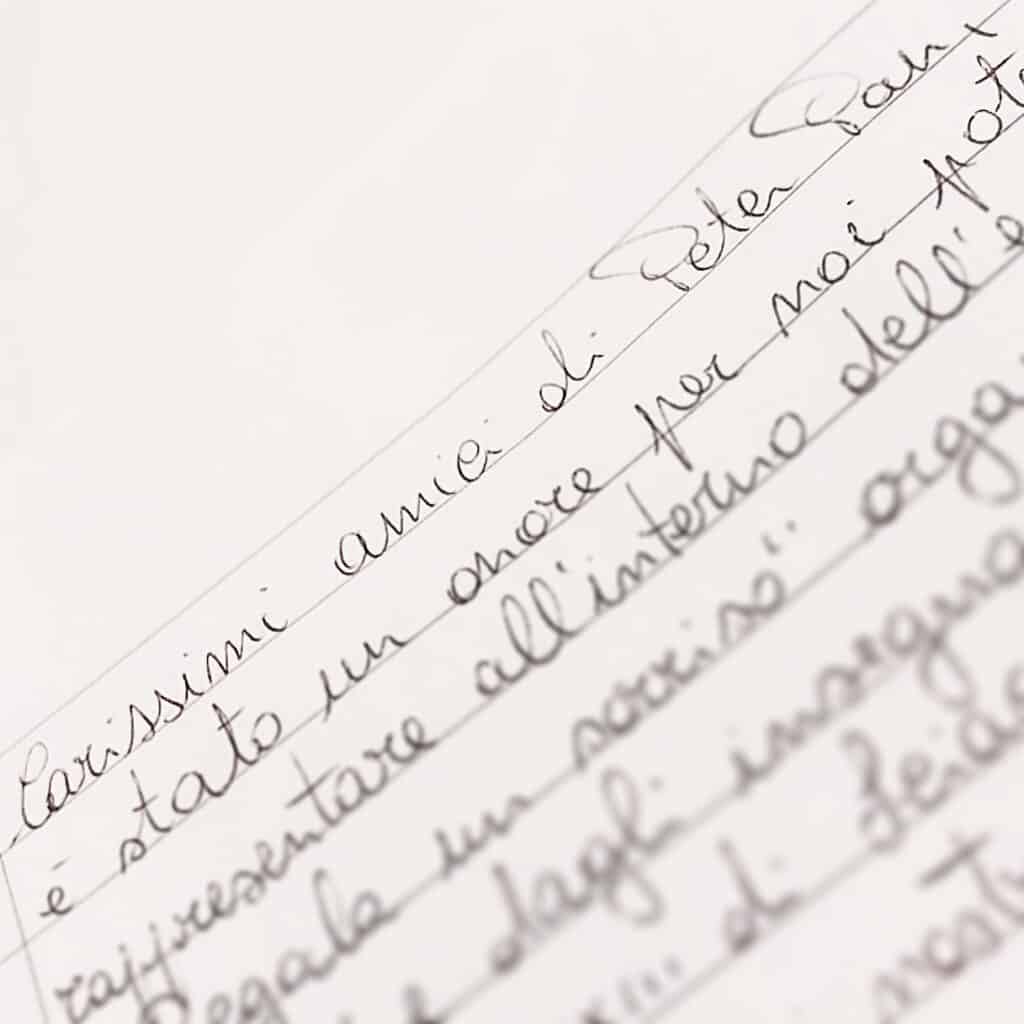 Carissimi amici di Peter Pan,
è stato un onore per noi pote
rappresentare all'interno dell'e
Regala un sorriso" orga
dagli insegna
di
nost